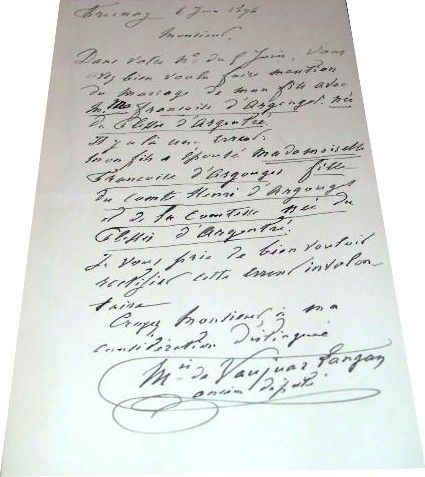 Fresnay 6 Juin 1896
Monsieur,
Dans votre No du 5 Juin, vous
avez bien voulu faire mention
du mariage de mon fils avec
Mme Françoise d'Argouges née
du Plessis d'Argentré.
Il y a là une erreur.
Mon fils a épousé Mademoiselle
Françoise d'Argouges fille
du comte Henri d'Argouges
et de la Comtesse née du
Plessis d'Argentré.
Je vous prie de bien vouloir
rectifier cette erreur involon
taire
Croyez Monsieur à ma
considération distinguée
Mis de Vaujuas Langan
ancien député